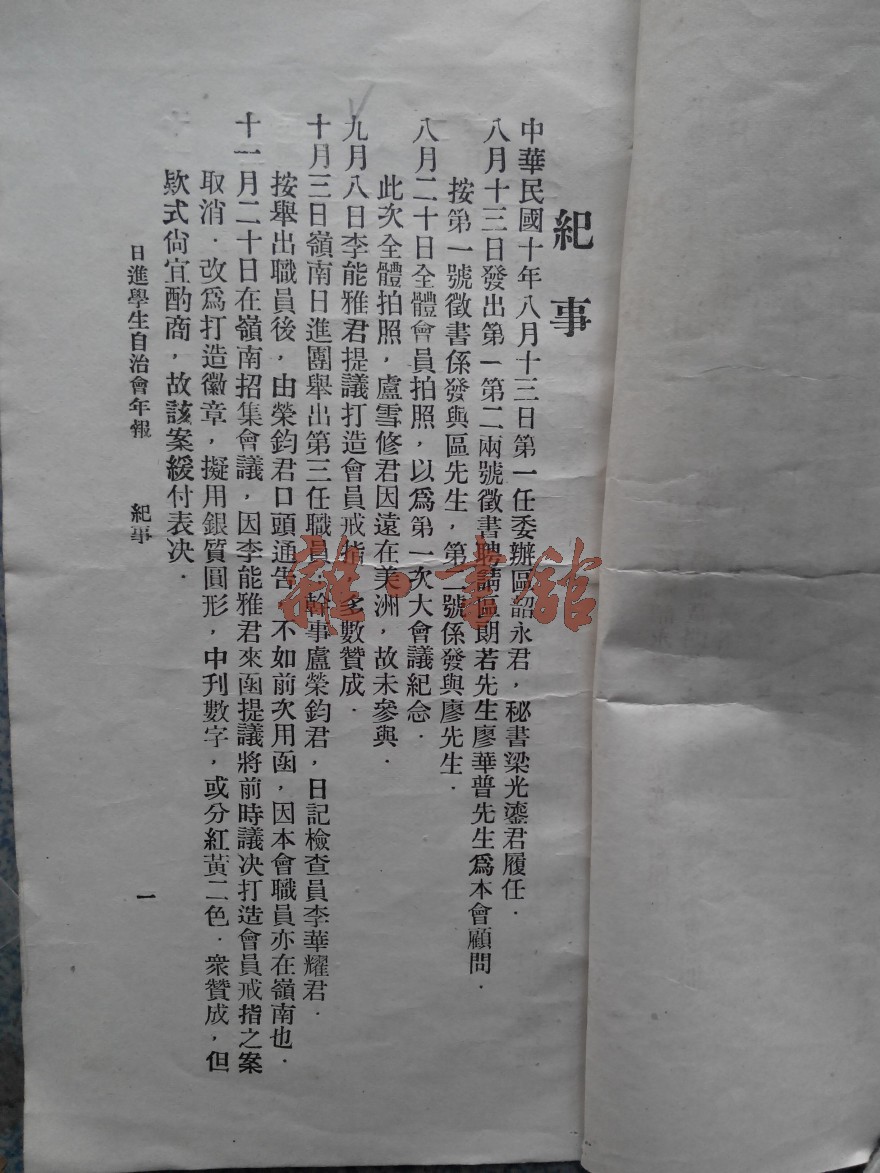 紀事
中華民國十年八月十三日第一任委辦區韶永君，秘書梁光鎏君履任．
八月十三日發出第一第二兩號徵書聘請區朗若先生廖華普先生爲本會顧問．
按第一號徵書係發與區先生，第二號係發與廖先生．
八月二十日全體會員拍照，以爲第一次大會議紀念．
此次全體拍照，盧雪修君因遠在美洲，故未參與．
九月八日李能雅君提議打造會員戒指，多數贊成．
十月三日嶺南日進團舉出第三任職員，幹事盧榮鈞君，日記檢查員李華耀君．
按舉出職員後，由榮鈞君口頭通告，不如前次用函，因本會職員亦在嶺南也．
十一月二十日在嶺南招集會議，因李能雅君來函提議將前時議決打造會員戒指之案
取消．改爲打造徽章，擬用銀質圓形，中刊數字，或分紅黃二色．衆贊成，但
欵式尙宜酌商，故該案緩付表决．
日進學生自治會年報　紀事
一
雜·書館